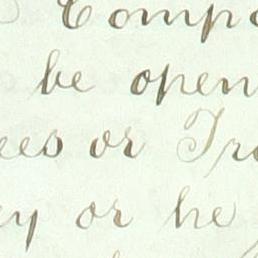 Compa
be open
ees or Tra
ey or he